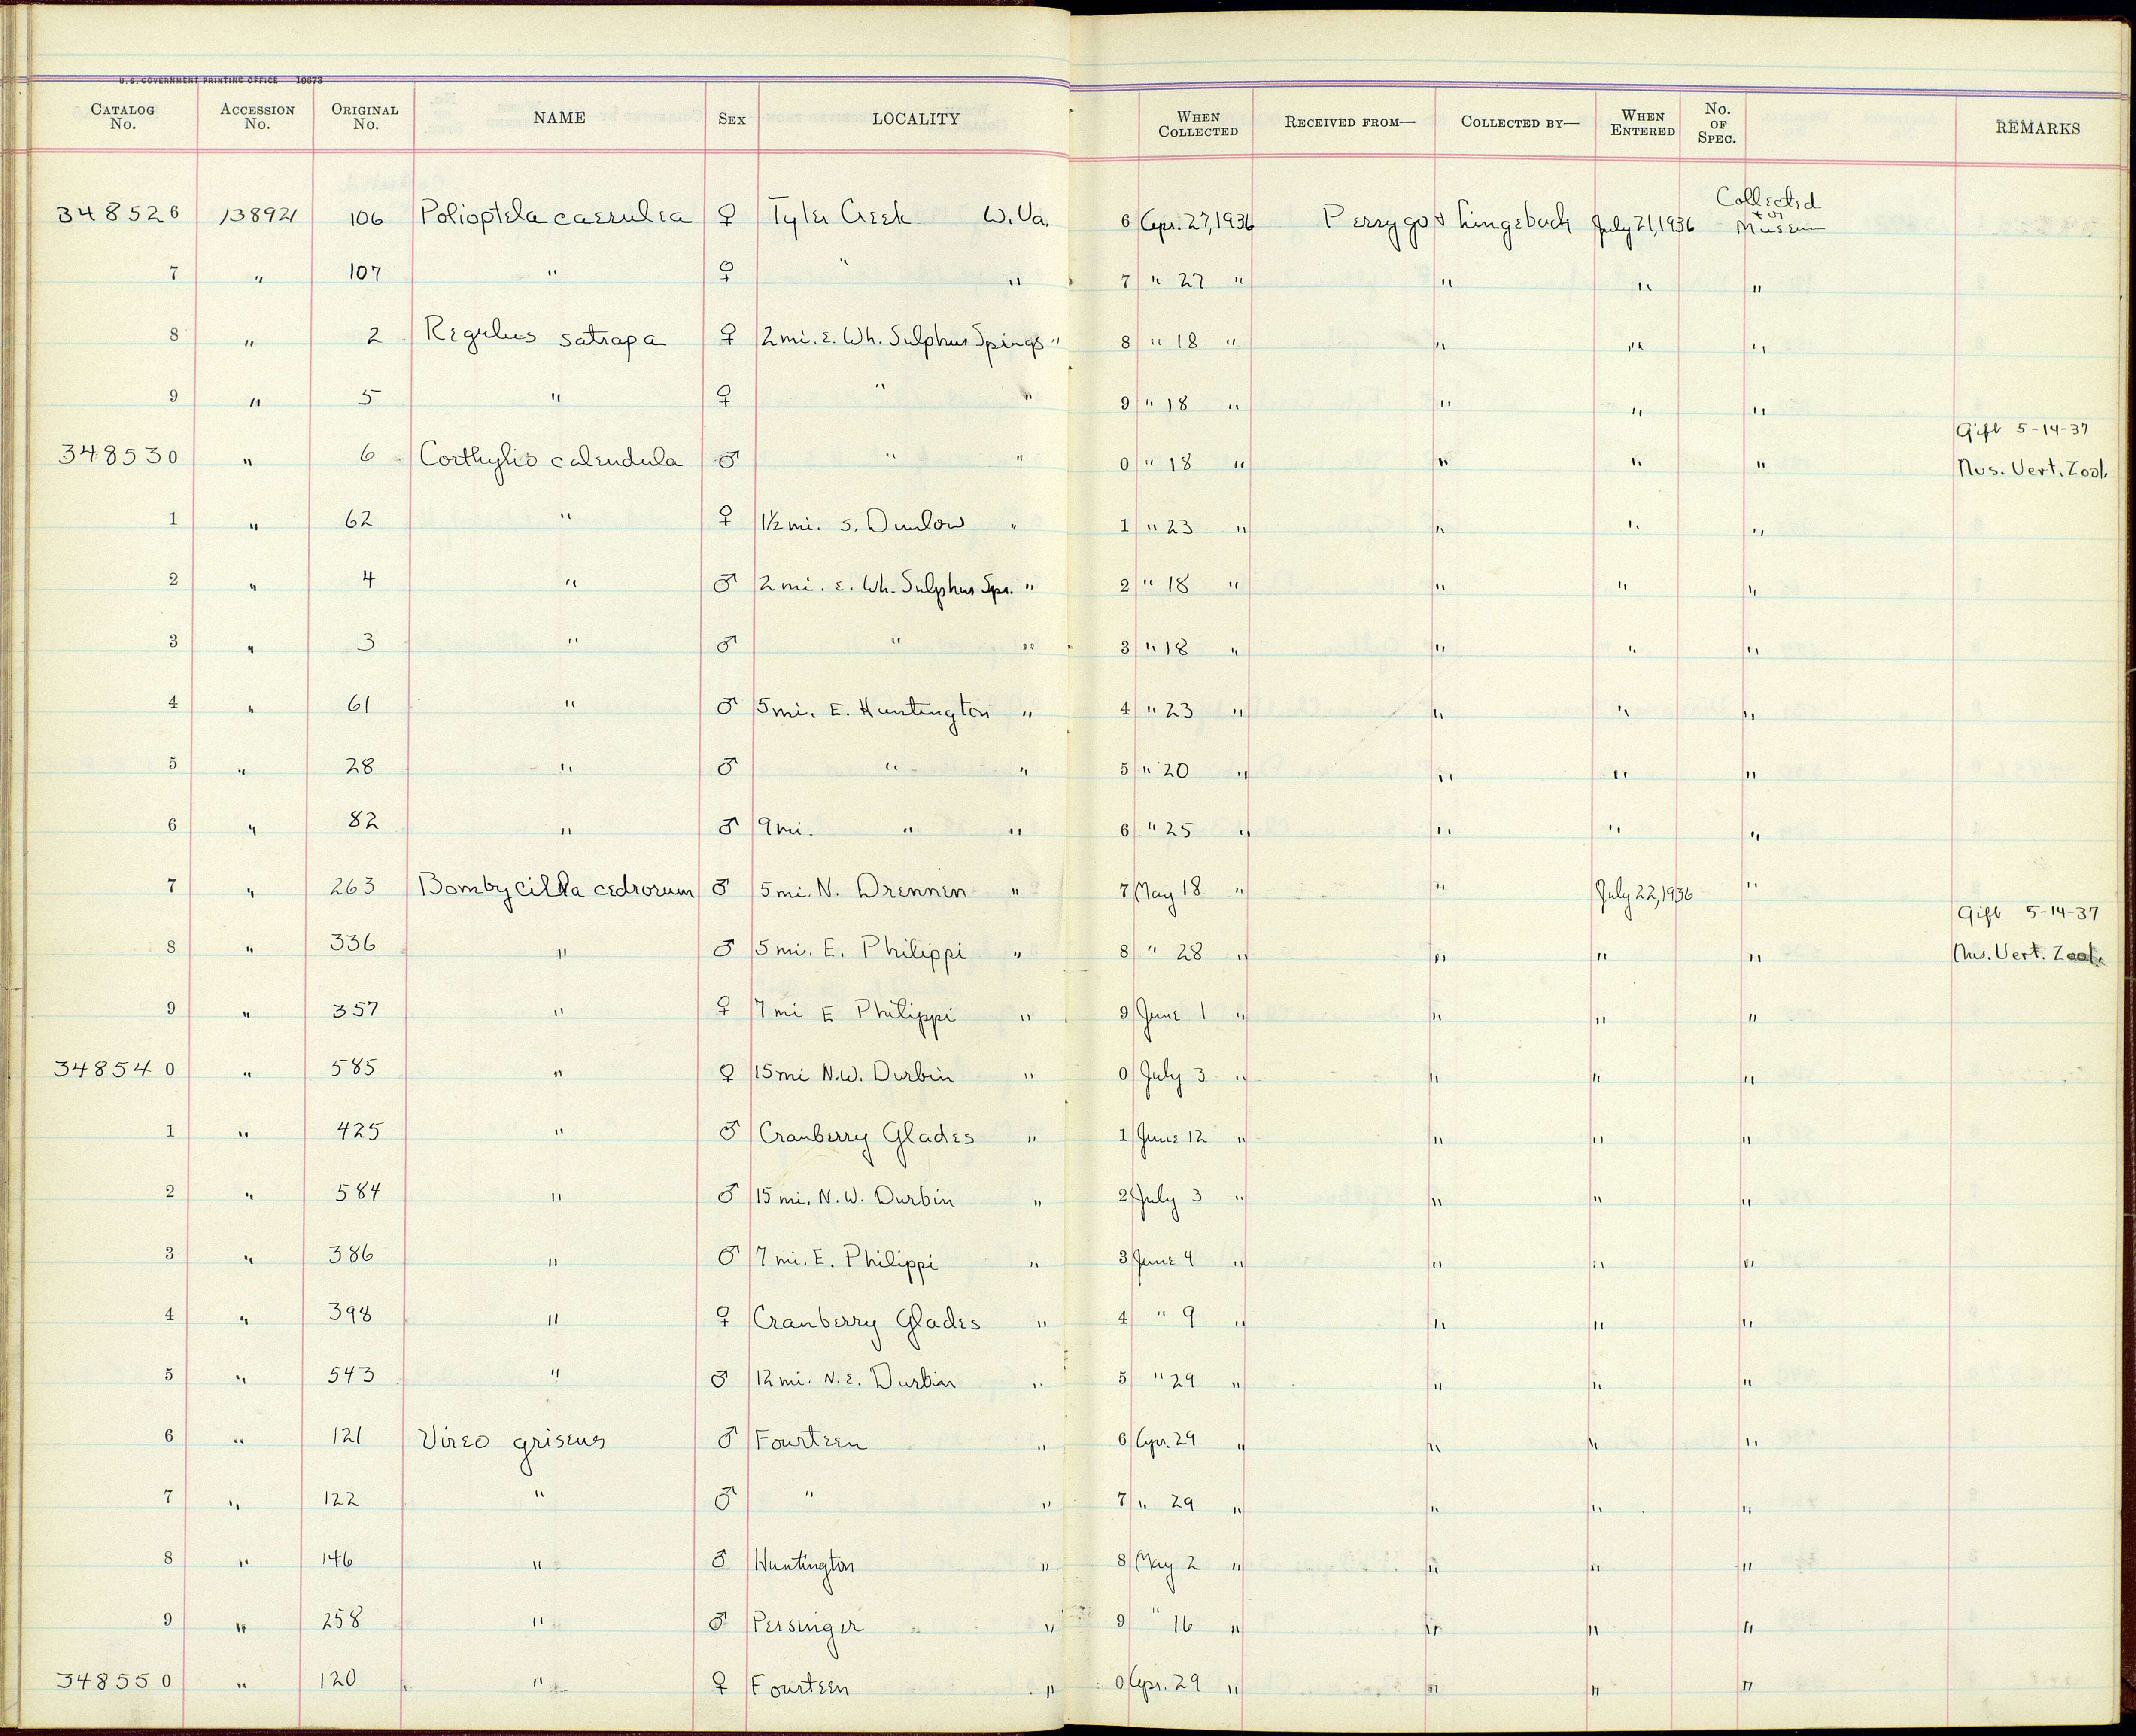 U. S. GOVERNMENT PRINTING OFFICE 10673
CATALOG No. ACCESSION No. ORIGINAL No. NAME SEX LOCALITY WHEN COLLECTED RECEIVED FROM— COLLECTED BY— WHEN ENTERED No. OF SPEC. REMARKS
348526 138921 106 Polioptela caerulea ♀ Tyler Creek W. Va. 6 Apr. 27, 1936 Perrygo & Lingebach July 21, 1936 Collected for Museum
7 " 107 " ♀ " " 7 " 27 " " " "
8 " 2 Regulus satrapa ♀ 2 mi. E. Wh. Sulphur Spings " 8 " 18 " " " "
9 " 5 " ♀ " " 9 " 18 " " " "
348530 " 6 Corthylio calendula ♂ " " 0 " 18 " " " " Gift 5-14-37 Mus. Vert. Zool.
1 " 62 " ♀ 1½ mi. S. Dunlow " 1 " 23 " " " "
2 " 4 " ♂ 2 mi. E. Wh. Sulphur Spr. " 2 " 18 " " " "
3 " 3 " ♂ " " 3 " 18 " " " "
4 " 61 " ♂ 5 mi. E. Huntington " 4 " 23 " " " "
5 " 28 " ♂ " " 5 " 20 " " " "
6 " 82 " ♂ 9 mi. " " 6 " 25 " " " "
7 " 263 Bombycilla cedrorum ♂ 5 mi. N. Drennen " 7 May 18 " " July 22, 1936 "
8 " 336 " ♂ 5 mi. E. Philippi " 8 " 28 " " " " Gift 5-14-37 Mus. Vert. Zool.
9 " 357 " ♀ 7 mi E Philippi " 9 June 1 " " " "
348540 " 585 " ♀ 15 mi N.W. Durbin " 0 July 3 " " " "
1 " 425 " ♂ Cranberry Glades " 1 June 12 " " " "
2 " 584 " ♂ 15 mi. N.W. Durbin " 2 July 3 " " " "
3 " 386 " ♂ 7 mi. E. Philippi " 3 June 4 " " " "
4 " 398 " ♀ Cranberry Glades " 4 " 9 " " " "
5 " 543 " ♂ 12 mi. N.E. Durbin " 5 " 29 " " " "
6 " 121 Vireo griseus ♂ Fourteen " 6 Apr. 29 " " " "
7 " 122 " ♂ " " 7 " 29 " " " "
8 " 146 " ♂ Huntington " 8 May 2 " " " "
9 " 258 " ♂ Persinger " 9 " 16 " " " "
348550 " 120 " ♀ Fourteen " 0 Apr. 29 " " " "